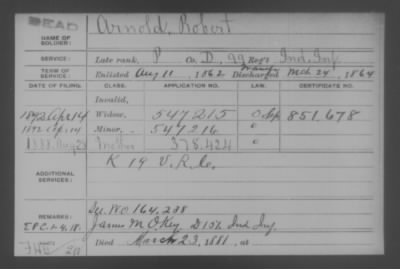 DEAD
NAME OF SOLDIER: Arnold, Robert
SERVICE: Late rank, P Co. D, 99 Reg't Ind. Inf.
TERM OF SERVICE: Enlisted Aug 11, 1862 Discharged Mch 24, 1864
DATE OF FILING. CLASS. APPLICATION NO. LAW. CERTIFICATE NO.
Invalid,
1892 Apr 14 Widow, 547215 851.678
1892 Apr 14 Minor, 547216
1888 Aug Mother 378.424
K 19 V.R.C.
ADDITIONAL SERVICES:
REMARKS: W.O. 164,238
James M. O.Key D 15 Ind Inf
Died March 23, 1881, at